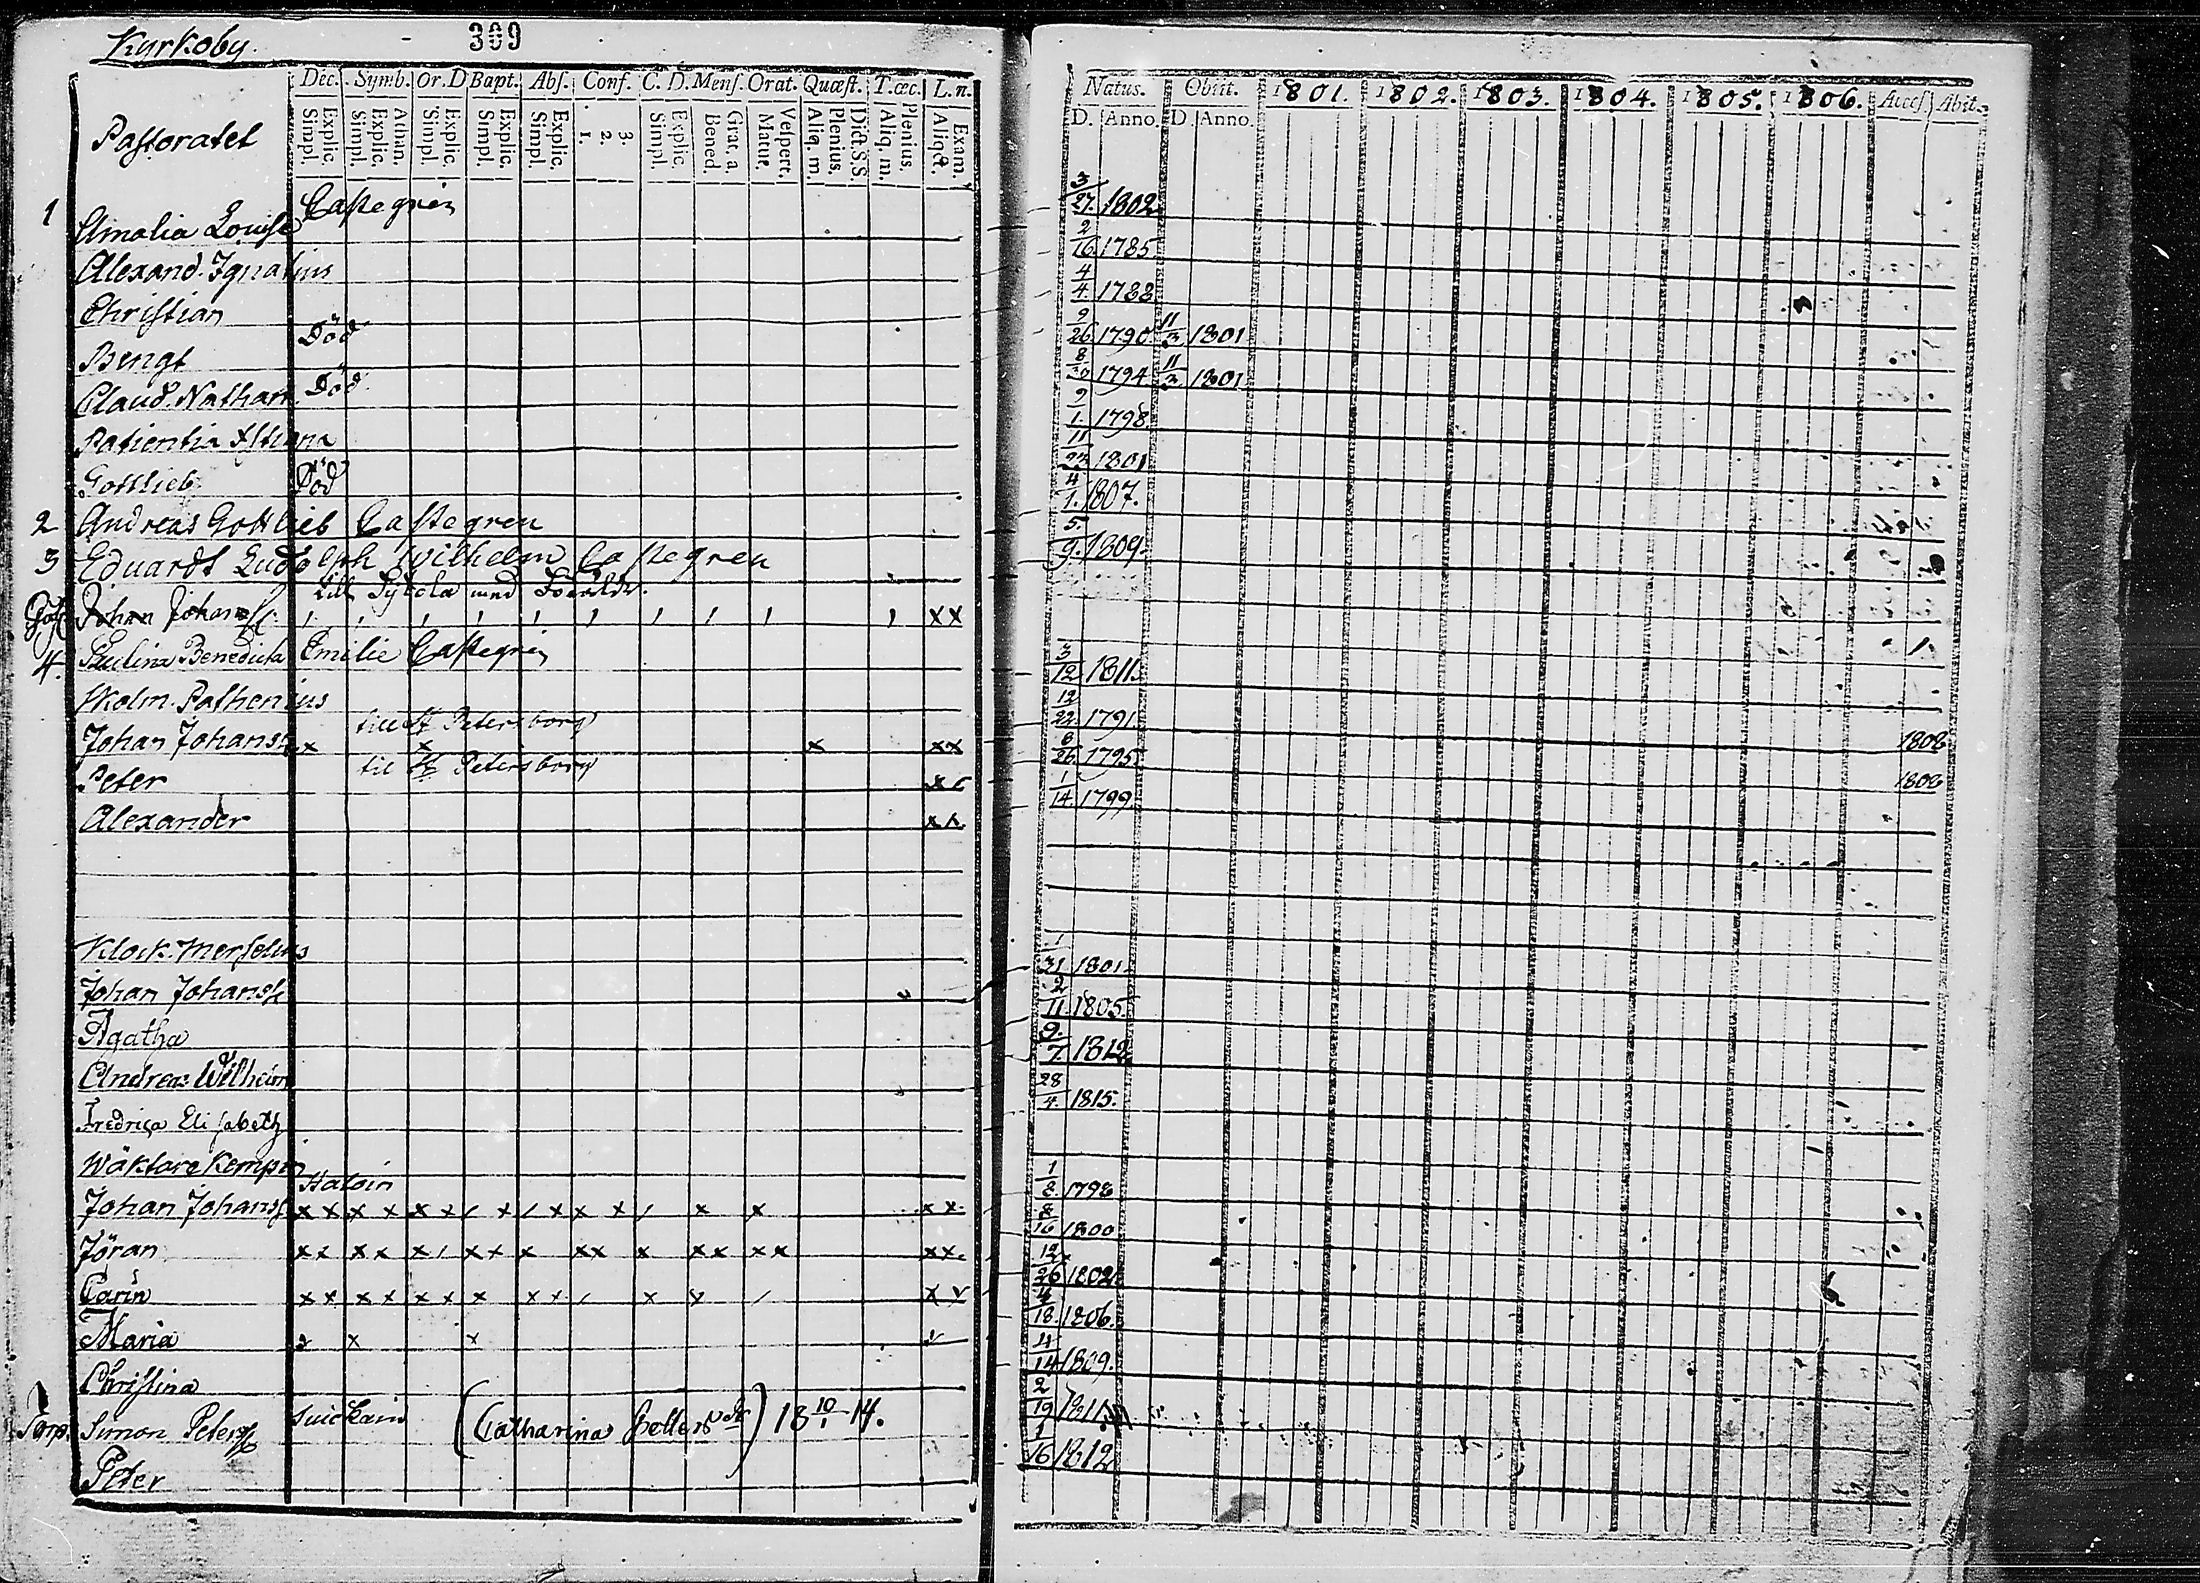 Kyrkoby.
309
Dec. Symb. Or. D Bapt. Abs. Conf. C. D. Mens. Orat. Quæst. T. œc. L. n.
Explic. Simpl. Athan. Explic. Simpl. Explic. Simpl. Explic. Simpl. Explic. Simpl. 3. 2. 1. Explic. Simpl. Grat. a Bened. Vespert. Matut. Dict. S S Plenius. Aliq. m. Plenius. Aliq. m. Exam. Aliqd.
Pastoratet
1 Amalia Louise Castegrén
Alexand. Ignatius
Christian
Bengt Död
Claud. Nathan. Död
Patientia Xstiana
Gottlieb Död
2 Andreas Gottlieb Castegren
3 Eduardt Ludolph Wilhelm Castegren
till Pyhela med Föräldr.
Johan Johanss.
4. Paulina Benedicta Emilie Castegrén
Skolm. Pathenius
Johan Johanss. till St Petersborg
Peter till St Petersborg
Alexander
Klock. Merselius
Johan Johanss.
Agatha
Andreas Wilhelm
Fredrica Elisabeth
Wäktare Kempin
Johan Johanss. Haloin
Jöran
Carin
Maria
Christina
Torp. Simon Peterss. Suickain (Catharina Pettersdr) 18 10/1 14.
Peter
Natus. Obiit. 1801. 1802. 1803. 1804. 1805. 1806. Access. Abit.
D. Anno. D. Anno.
3/27. 1802
2/16. 1785
4/4. 1788
9/26. 1790. 11/3 1801
8/30 1794 11/3 1801
9/1. 1798.
11/23 1801
4/1. 1807.
5/9. 1809.
3/12. 1811.
12/22. 1791.
8/26. 1795. 1808
1/14. 1799. 1808
1/31 1801.
2/11. 1805.
9./7. 1812
28/4. 1815.
1/8. 1798
8/16 1800
12/26 1802
4/18. 1806.
4/14 1809.
2/19 1811.
1/16 1812